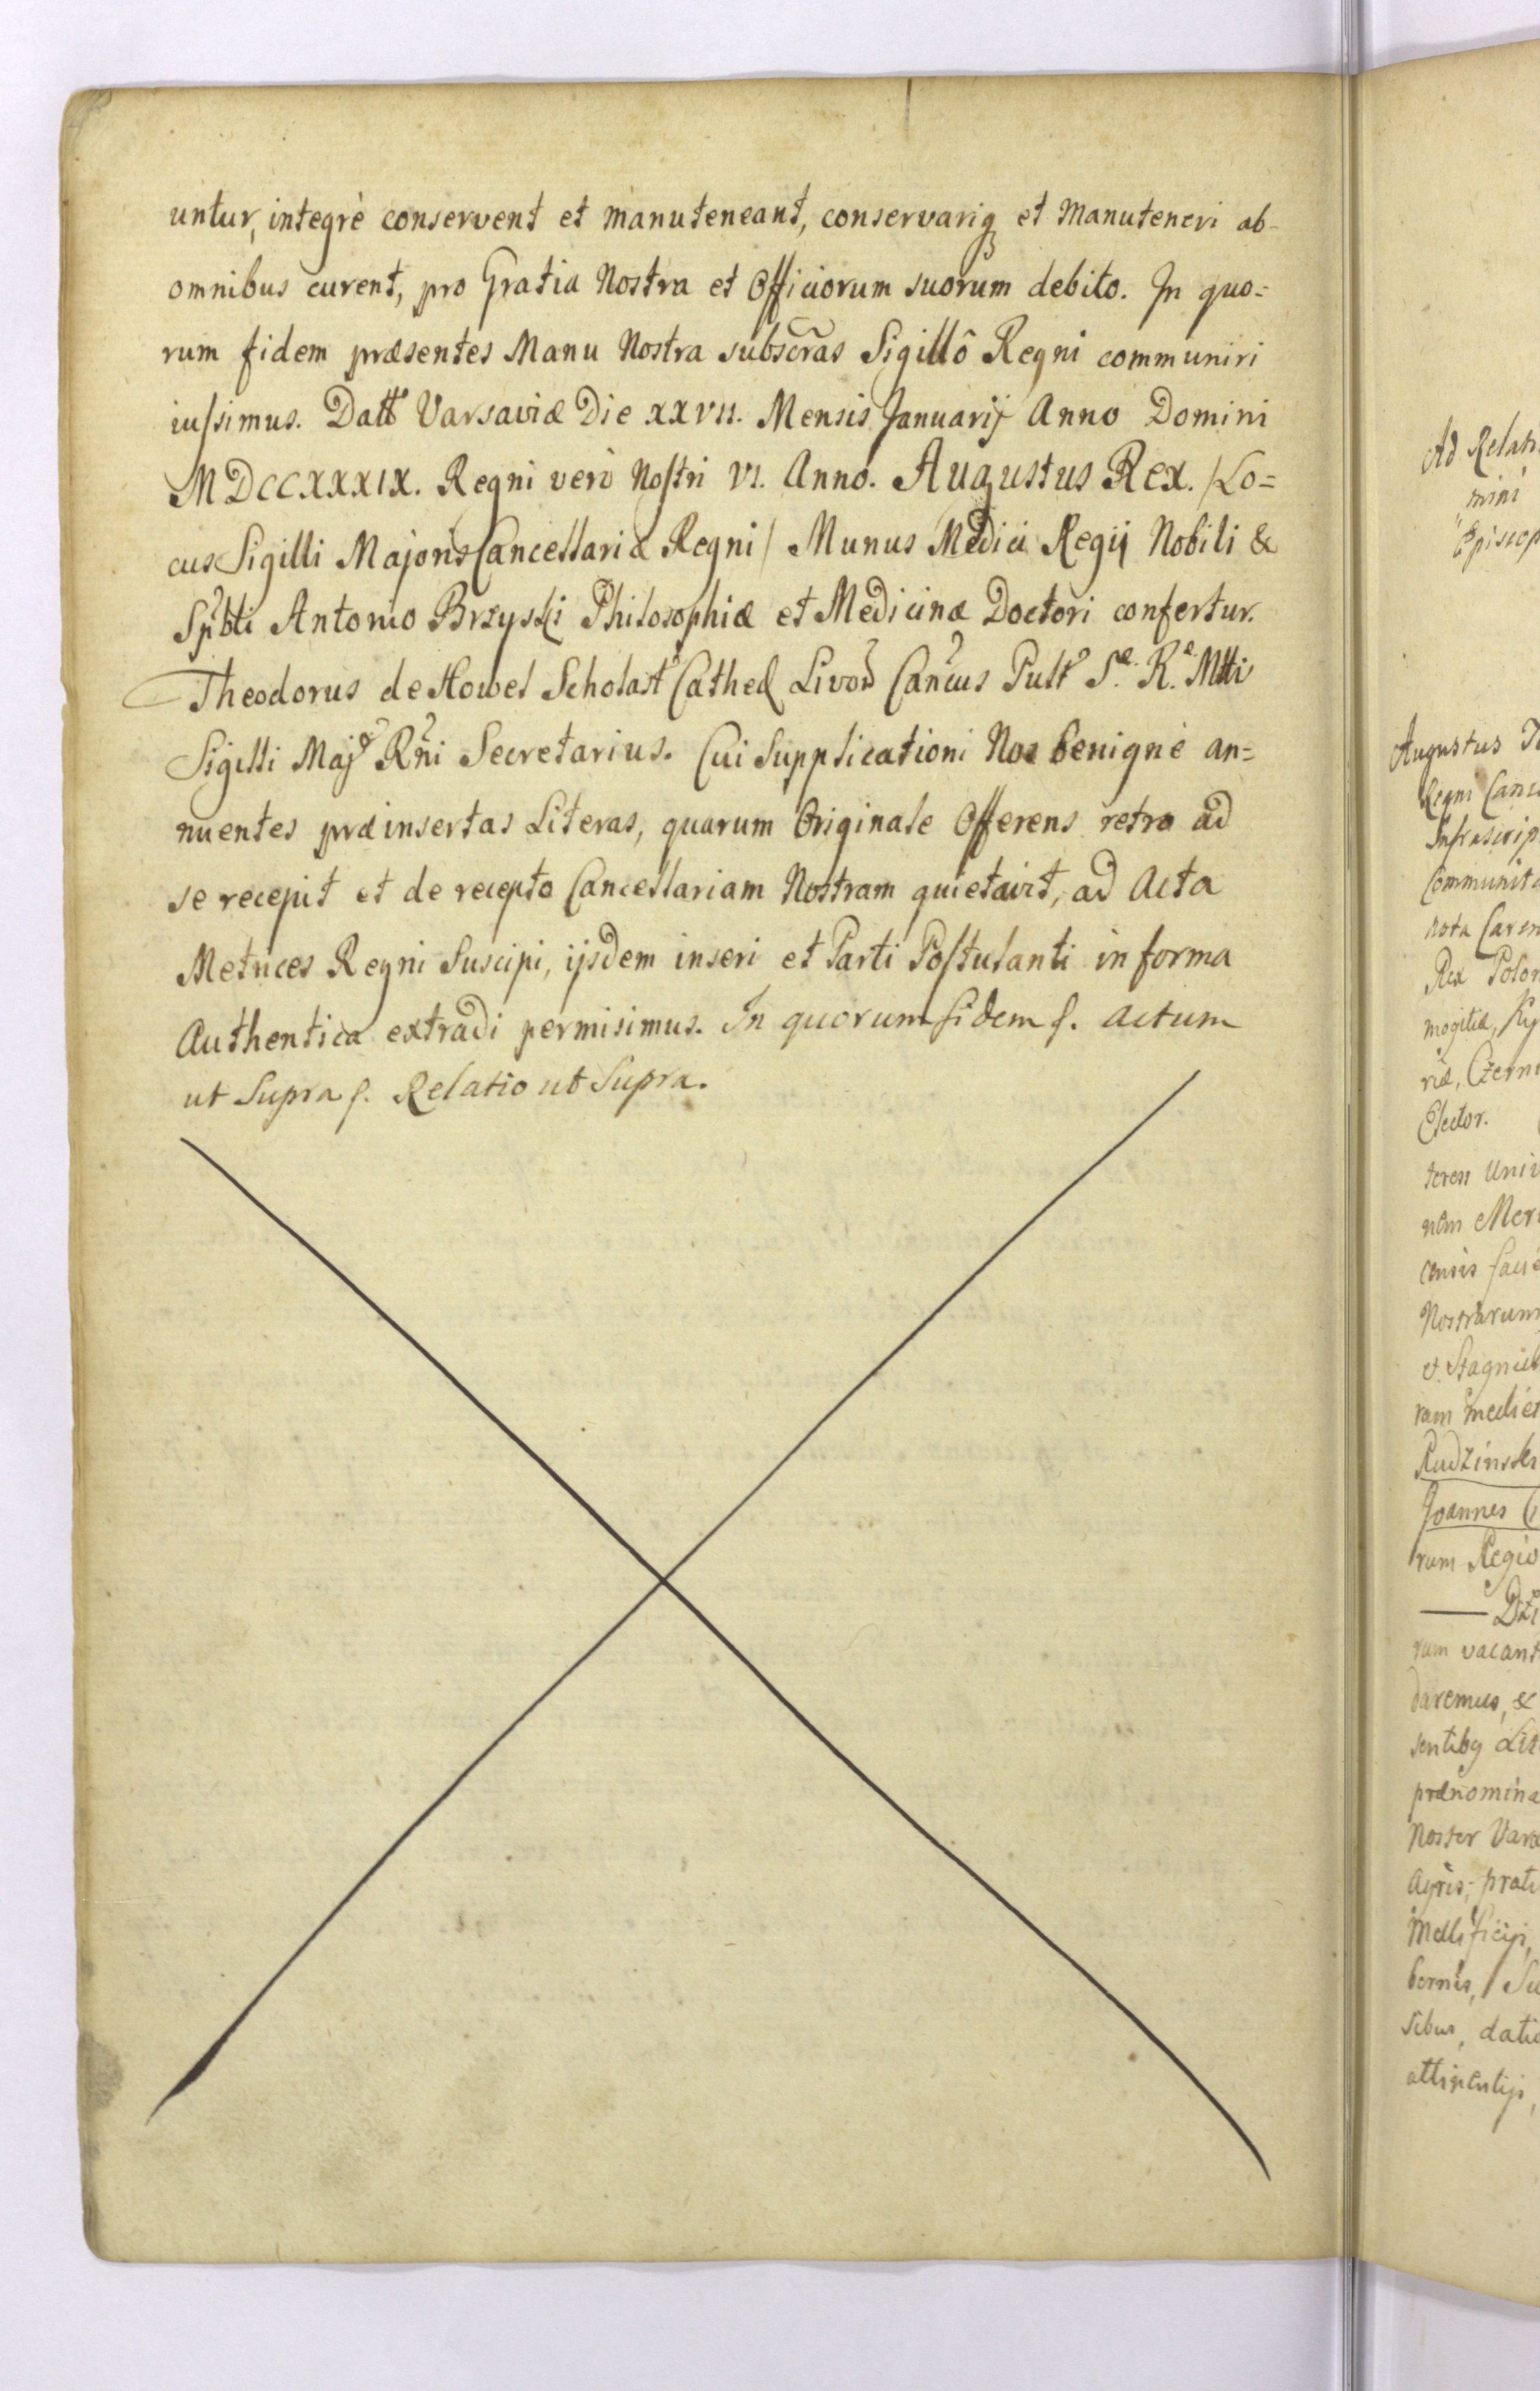 untur, integrè conservent et manuteneant, conservariq; et Manuteneri ab-
omnibus curent, pro Gratia Nostra et Officiorum suorum debito. In quo=
rum fidem præsentes Manu Nostra subscras Sigillô Regni communiri
iussimus. Datt Varsaviæ Die XXVII. Mensis Januarij Anno Domini
MDCCXXXIX. Regni verò Nostri VI. Anno. Augustus Rex. /Lo=
cus Sigilli Majoris Cancellariæ Regni/ Munus Medici Regij Nobili &
Spbti Antonio Brzyski Philosophiæ et Medicinæ Doctori confertur.
Theodorus de Howel Scholast Cathed Livon Cancus Pult S. R. Mttis
Sigilli Maj Rni Secretarius. Cui Supplicationi Nos benignè an=
nuentes præinsertas Literas, quarum Originale Offerens retro ad
se recepit et de recepto Cancellariam Nostram quietavit, ad Acta
Metrices Regni Suscipi, ijsdem inseri et Parti Postulanti in forma
Authentica extradi permisimus. In quorum fidem f. Actum
ut Supra f. Relatio ut Supra.
Ad Relati
mini
Episcop
Augustus
Regni Canc
Infrascrip
Communit
nota Caren
Rex Polon
mogitiæ, Ky
riæ, Czerni
Elector.
teress Univ
nem Mer
censis
Nostrarum
et Stagni
ram mediet
Rudzinski
Joannes
rum Regio
rum vacant
daremus, &
sentibq Lit
prænomina
Noster
Agris, prati
Mellificijs,
bernis,
sibus, datio
attinentijs,